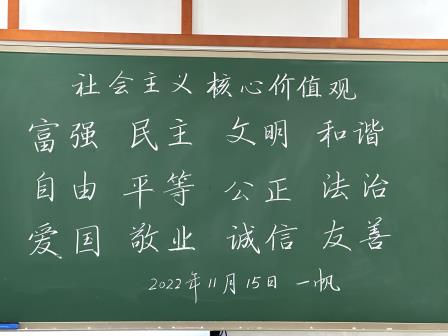 社会主义核心价值观
富强 民主 文明 和谐
自由 平等 公正 法治
爱国 敬业 诚信 友善
2022年11月15日 一帆